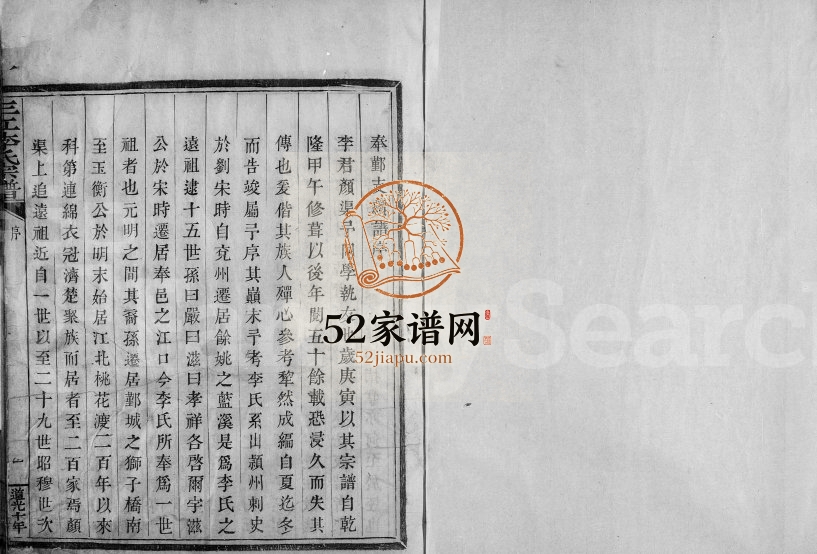 奉鄞支譜序
李君顏渠予同學執友也歲庚寅以其宗譜自乾
隆甲午修葺以後年閱五十餘載恐浸久而失其
傳也爰偕其族人殫心參考犂然成編自夏迄冬
而告竣屬予序其巔末予考李氏系出潁州刺史
於劉宋時自兗州遷居餘姚之藍溪是爲李氏之
遠祖逮十五世孫曰嚴曰滋曰孝祥各啓爾宇滋
公於宋時遷居奉邑之江口今李氏所奉爲一世
祖者也元明之間其裔孫遷居鄞城之獅子橋南
至玉衡公於明末始居江北桃花渡二百年以來
科第連綿衣冠濟楚聚族而居者至二百家焉顏
渠上追遠祖近自一世以至二十九世昭穆世次
三江李氏宗譜
序
一
道光十年
52家谱网
52jiapu.com
Search